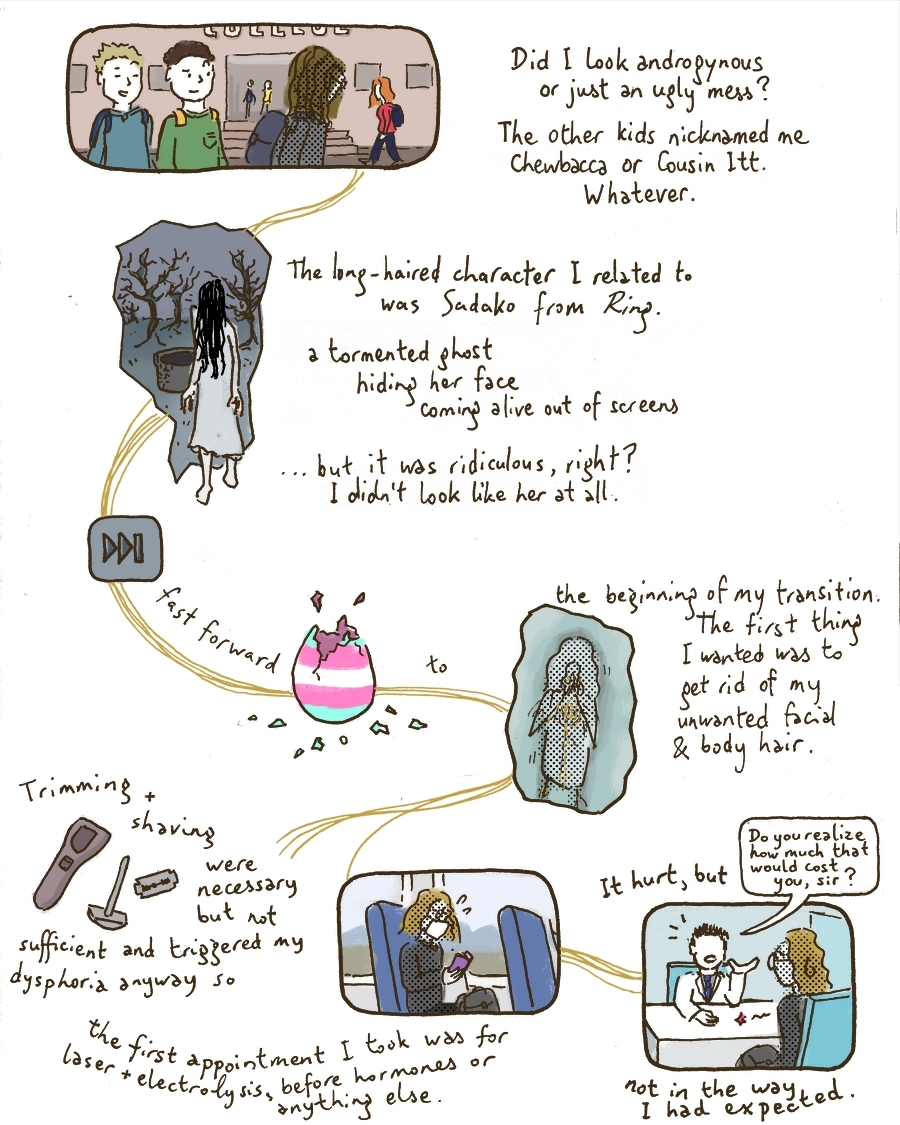 COLLEGE
Did I look androgynous
or just an ugly mess?
The other kids nicknamed me
Chewbacca or Cousin Itt.
Whatever.
The long-haired character I related to
was Sadako from Ring.
a tormented ghost
hiding her face
coming alive out of screens
...but it was ridiculous, right?
I didn't look like her at all.
fast forward
to
the beginning of my transition.
The first thing
I wanted was to
get rid of my
unwanted facial
& body hair.
Trimming +
shaving
were
necessary
but not
sufficient and triggered my
dysphoria anyway so
the first appointment I took was for
laser + electrolysis, before hormones or
anything else.
It hurt, but
Do you realize
how much that
would cost
you, sir?
not in the way
I had expected.